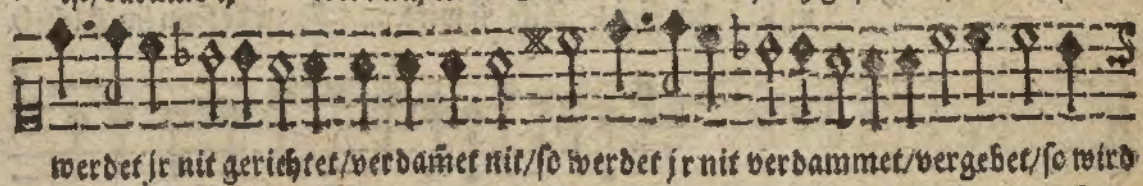 werdet jr nit gerichtet/verdam̃et nit/so werdet jr nit verdammet/vergebet/so wird